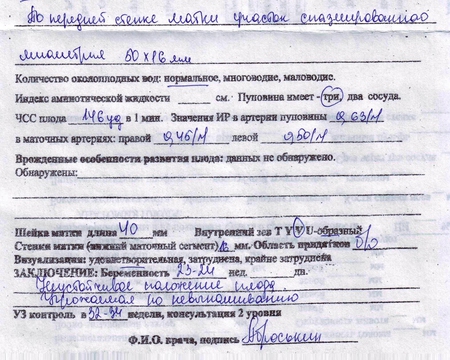 По передней стенке матки участок спазмированного
миометрия 50x16 мм
Количество околоплодных вод: нормальное, многоводие, маловодие.
Индекс амниотической жидкости ______ см. Пуповина имеет - три, два сосуда.
ЧСС плода 146 уд в 1 мин. Значения ИР в артерии пуповины 0,63/N
в маточных артериях: правой 0,46/N левой 0,50/N
Врожденные особенности развития плода: данных не обнаружено.
Обнаружены:
Шейка матки длина 40 мм Внутренний зев T Y V U-образный
Стенки матки (нижний маточный сегмент) мм. Область придатков б/о
Визуализация: удовлетворительная, затруднена, крайне затруднена
ЗАКЛЮЧЕНИЕ: Беременность 23-24 нед. ______ дн.
Неустойчивое положение плода.
Угрожаемая по невынашиванию
УЗ контроль в 32-34 недели, консультация 2 уровня
Ф.И.О. врача, подпись